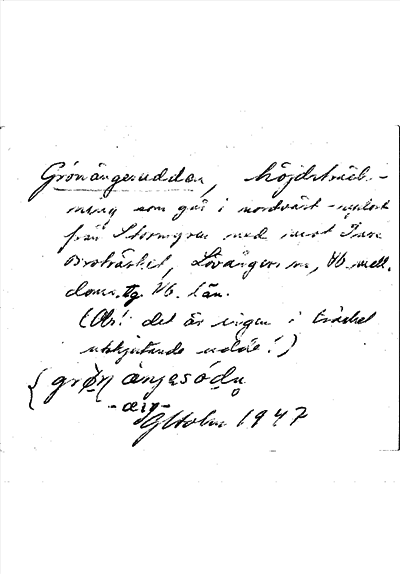 Grönängesuddar, höjdsträck-
ning som går i nordväst-sydost
från Stormyran ned mot Inre
Broträsket, Lövångers sn, Vb. mell.
doms. tg. Vb. län.
(Obs! det är ingen i träsket
utskjutande udde!)
{ grǿn ànjesódu
-æŋ-
G Holm 1947